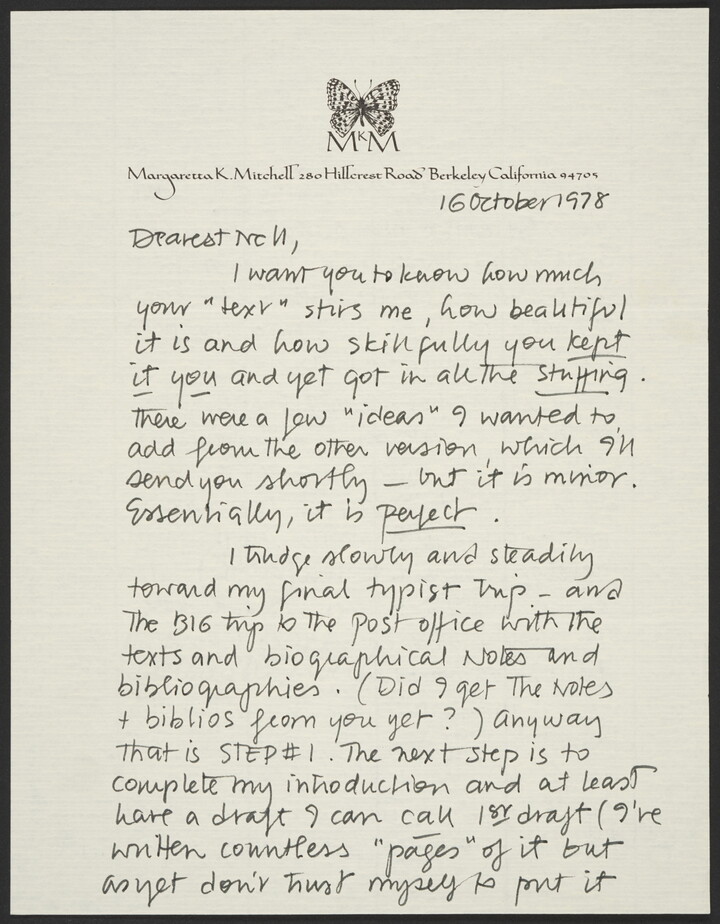 MKM
Margaretta K. Mitchell 280 Hillcrest Road Berkeley California 94705
16 October 1978
Dearest Nell,
I want you to know how much
your "text" stirs me, how beautiful
it is and how skillfully you kept
it you and yet got in all the stuffing.
There were a few "ideas" I wanted to
add from the other version, which I'll
send you shortly – but it is minor.
Essentially, it is perfect.
I trudge slowly and steadily
toward my final typist trip – and
The BIG trip to the post office with the
texts and biographical notes and
bibliographies. (Did I get the notes
+ biblios from you yet?) Anyway
that is STEP #1. The next step is to
complete my introduction and at least
have a draft I can call 1st draft (I've
written countless "pages" of it but
as yet don't trust myself to put it